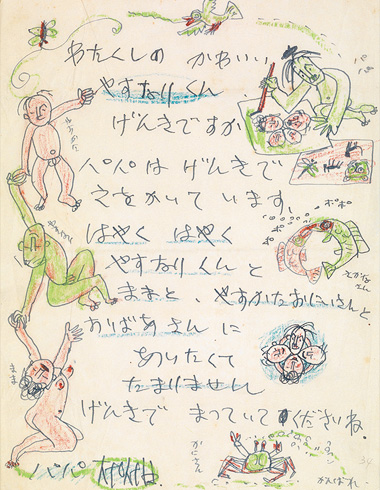 わたくしの かわいい
やすなりくん
げんきですか
パパは げんきで
えをかいて います。
はやく はやく
やすなりくんと
ままと、やすかたおにいさんと、
おりばあさんに
あいたくて
たまりません
げんきで まっていてくださいね。
パパ
ポポポ
かにさん
がんばれ
まま